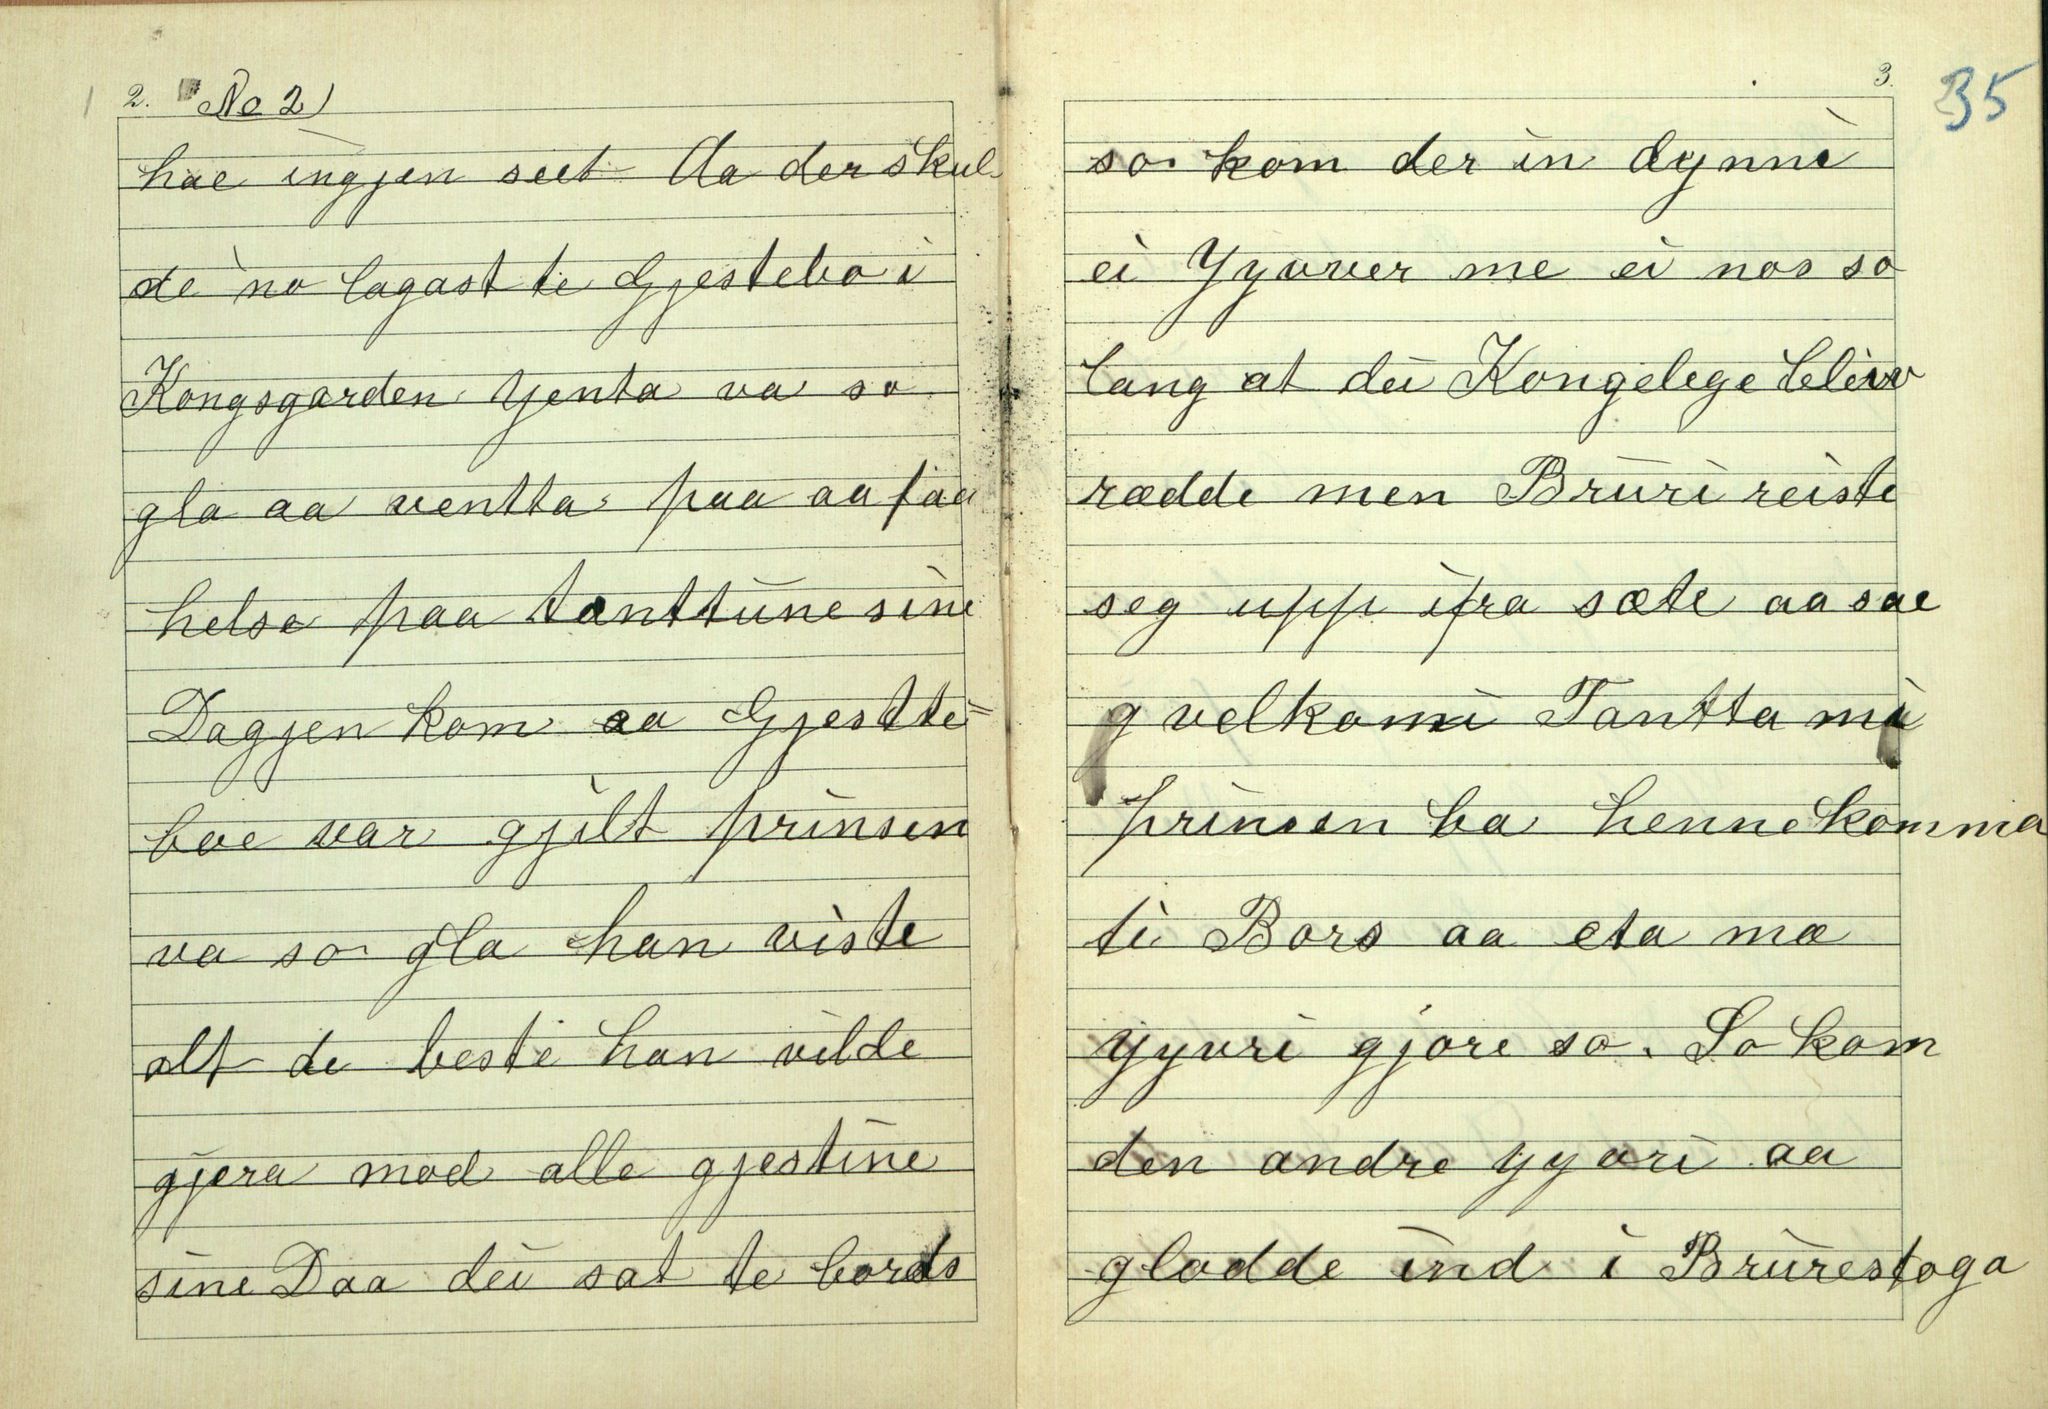 2. No 2)
hae ingjen seet Aa der skul
de no lagast te Gjestebo i
Kongsgarden Yenta va so
gla aa ventta paa aa faa
helse paa tanttune sine
Dagjen kom aa Gjestte=
boe var gjilt prinsen
va so gla han viste
alt de beste han vilde
gjera mod alle gjestine
sine Daa dei sat te bords
3.
35
so kom der in dynni
ei Yyvver me ei nos so
lang at dei Kongelege bleiv
rædde men Bruri reiste
seg upp ifra sæte aa sae
g velkomi Tantta mi
prinsen ba henne komma
ti Bors aa eta mæ
Yyvri gjore so. So kom
den andre yyvri aa
glodde ind i Brurestoga